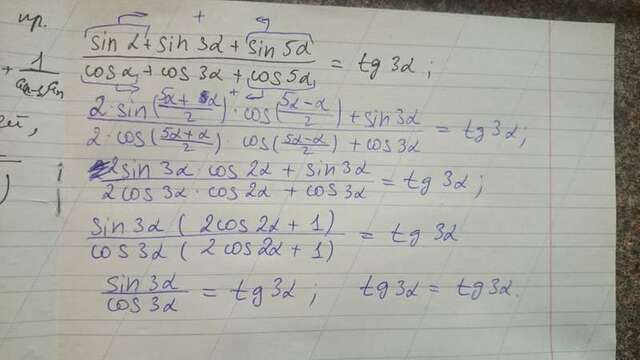 пр.
+ 1
sin α + sin 3α + sin 5α / cos α + cos 3α + cos 5α = tg 3α ;
2 sin (5α + α / 2) · cos (5α - α / 2) + sin 3α / 2 cos (5α + α / 2) · cos (5α - α / 2) + cos 3α = tg 3α ;
2 sin 3α · cos 2α + sin 3α / 2 cos 3α · cos 2α + cos 3α = tg 3α ;
sin 3α (2 cos 2α + 1) / cos 3α (2 cos 2α + 1) = tg 3α
sin 3α / cos 3α = tg 3α ; tg 3α = tg 3α.